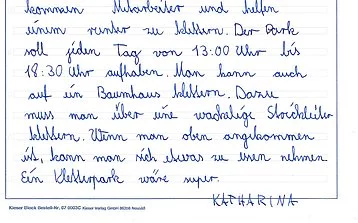 kommen Mitarbeiter und helfen
einem runter zu klettern. Der Park
soll jeden Tag von 13:00 Uhr bis
18:30 Uhr aufhaben. Man kann auch
auf ein Baumhaus klettern. Dazu
muss man über eine wackelige Strickleiter
klettern. Wenn man oben angekommen
ist, kann man sich etwas zu essen nehmen
Ein Kletterpark wäre super.
KATHARINA
Kieser Block Bestell-Nr. 07 0003C Kieser Verlag GmbH 86356 Neusäß